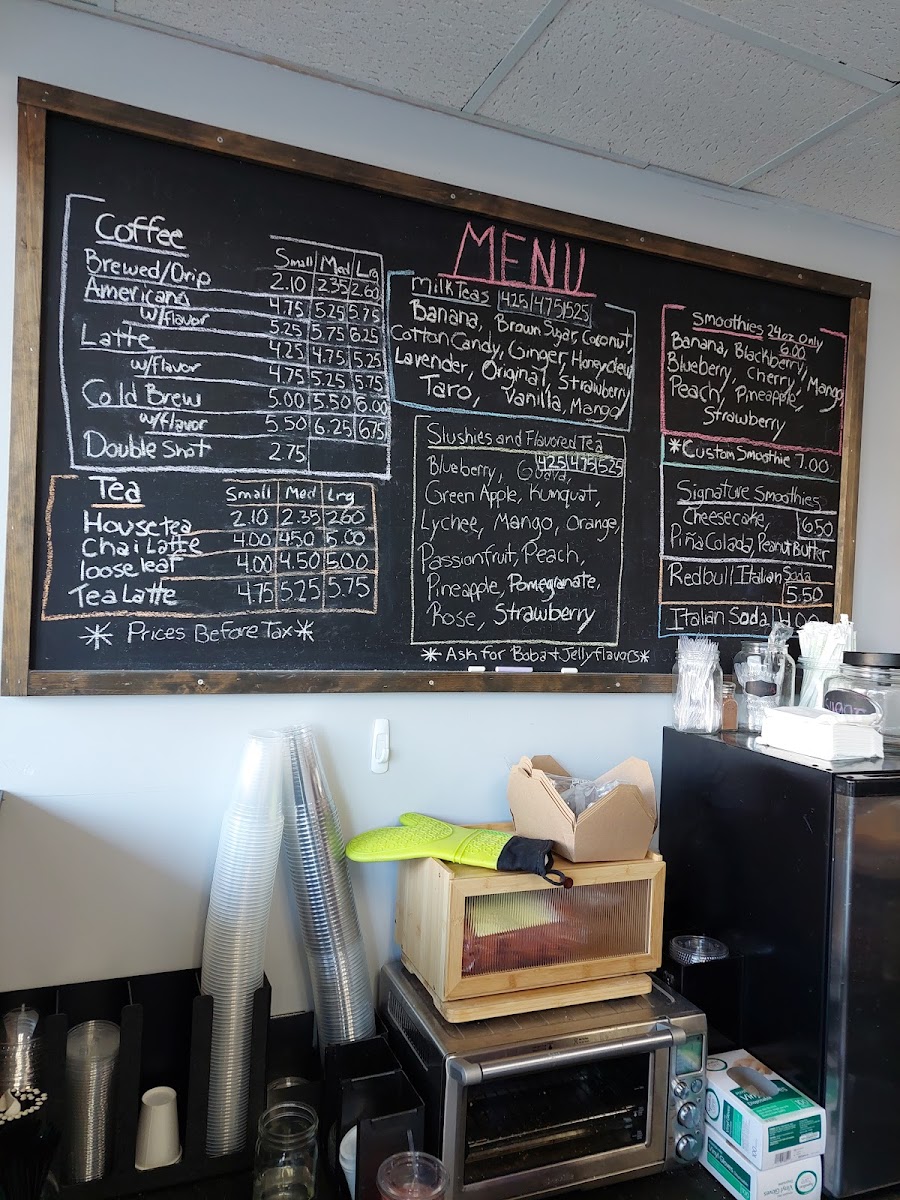 MENU
Coffee
Small Med Lrg
Brewed/Drip 2.10 2.35 2.60
Americano 4.75 5.25 5.75
w/flavor 5.25 5.75 6.25
Latte 4.25 4.75 5.25
w/flavor 4.75 5.25 5.75
Cold Brew 5.00 5.50 6.00
w/flavor 5.50 6.25 6.75
Double Shot 2.75
Tea Small Med Lrg
House tea 2.10 2.35 2.60
Chai Latte 4.00 4.50 5.00
loose leaf 4.00 4.50 5.00
Tea Latte 4.75 5.25 5.75
* Prices Before Tax *
Milk Teas 4.25 4.75 5.25
Banana, Brown Sugar, Coconut,
Cotton Candy, Ginger, Honeydew
Lavender, Original, Strawberry
Taro, Vanilla, Mango
Slushies and Flavored Tea
4.25 4.75 5.25
Blueberry, Guava,
Green Apple, Kumquat,
Lychee, Mango, Orange,
Passionfruit, Peach,
Pineapple, Pomegranate,
Rose, Strawberry
* Ask for Boba + Jelly flavors *
Smoothies 24oz Only
6.00
Banana, Blackberry,
Blueberry, Cherry, Mango
Peach, Pineapple,
Strawberry
*Custom Smoothie 7.00
Signature Smoothies
Cheesecake, 6.50
Piña Colada, Peanut Butter
Redbull Italian Soda
5.50
Italian Soda 4.00
Sugar